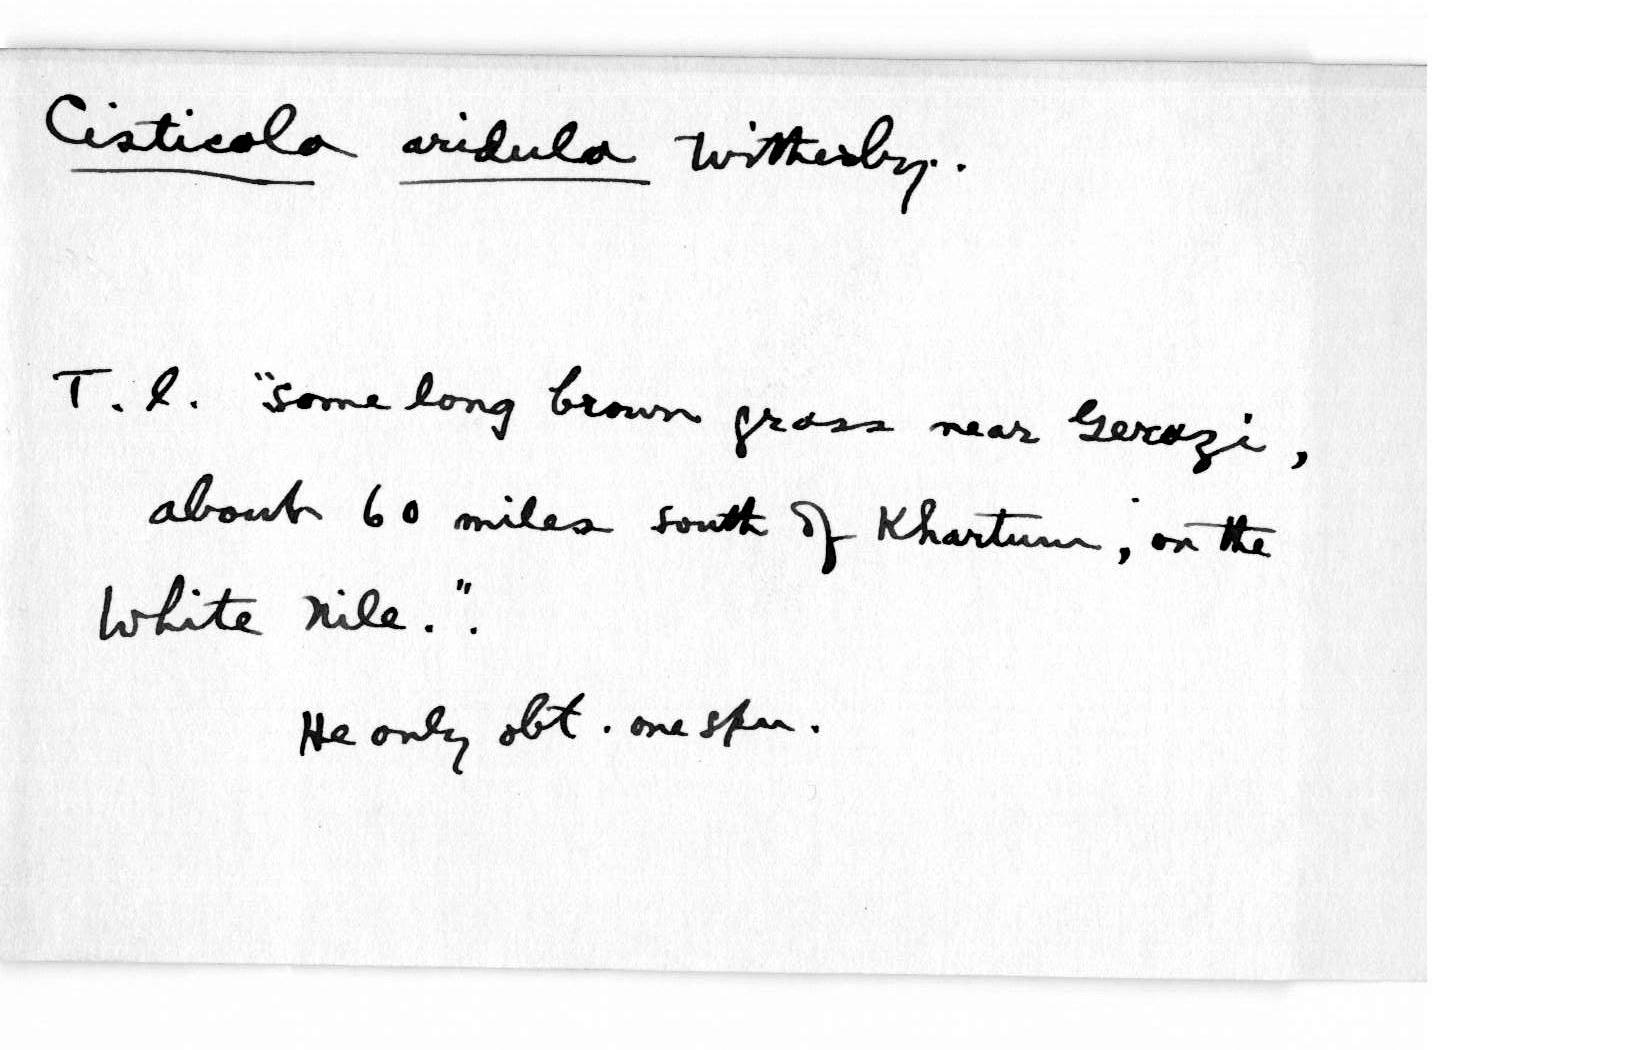 Cisticola aridula Witherby.
T. l. "Some long brown grass near Gerazi,
about 60 miles south of Khartum, on the
White Nile.".
He only obt. one spm.